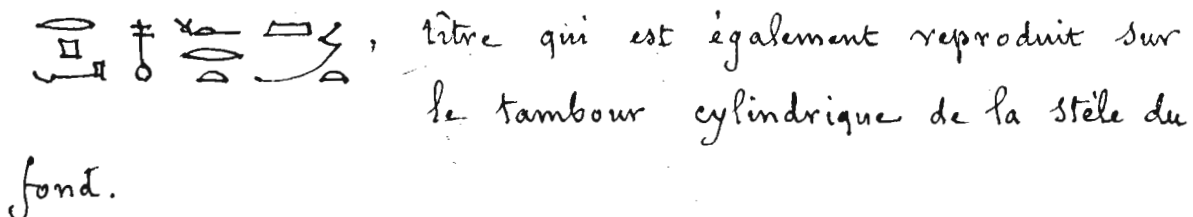 , tître qui est également reproduit sur
le tambour cylindrique de la stèle du
fond.